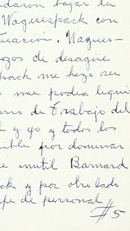 daron bajar la
Waguespack con
uación. Wagues-
ozos de desague
pack me hizo ser
me podia liqui
uno de trabajo del
l y yo y todos los
ible por dominar
e inutil Barnard
ck y por otro lado
efe de personal
#5